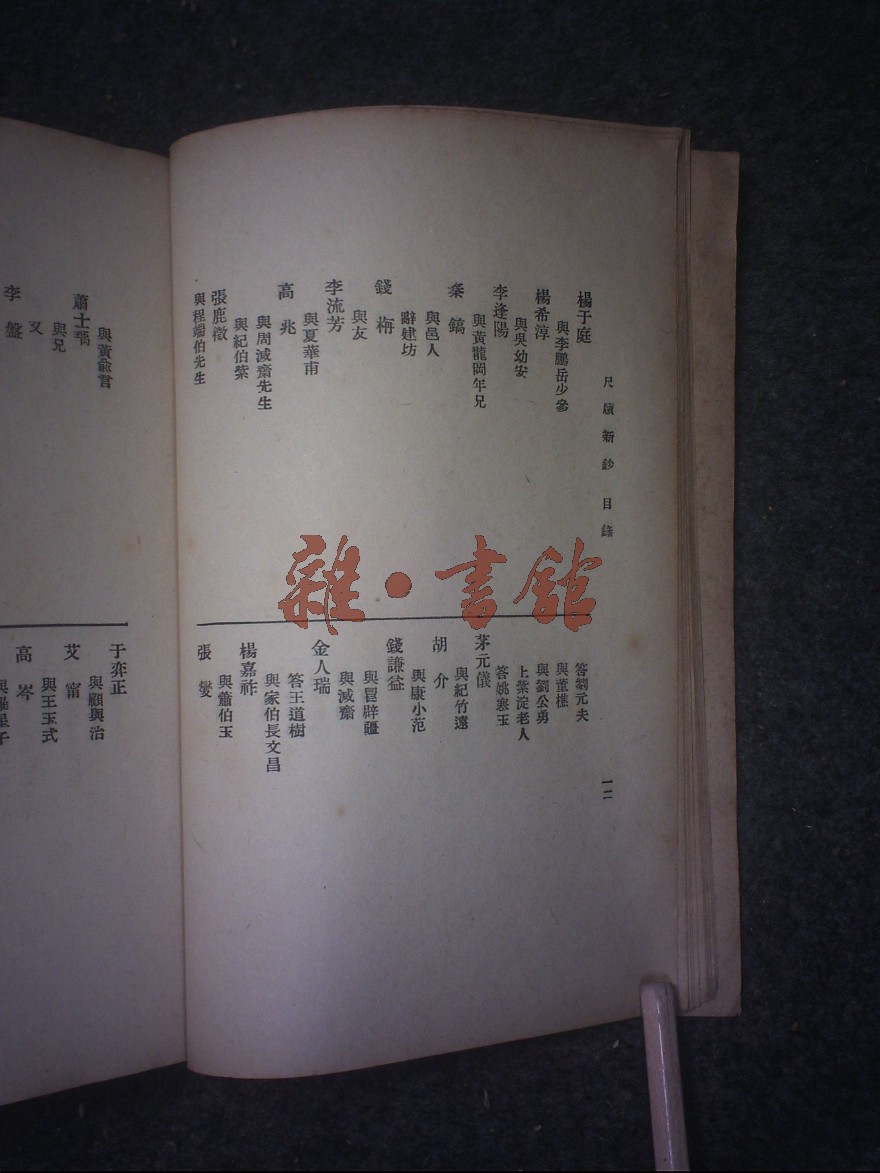 尺牘新鈔 目錄
一二
楊于庭
與李鵬岳少參
楊希淳
與吳幼安
李逢陽
與黃龍岡年兄
秦 鎬
與邑人
辭建坊
錢 栴
與友
李流芳
與夏華甫
高 兆
與周減齋先生
張鹿徵
與紀伯紫
與程端伯先生
答劉元夫
與董樵
與劉公勇
上葉淀老人
答姚寒玉
茅元儀
與紀竹遠
胡 介
與康小范
錢謙益
與冒辟疆
與減齋
金人瑞
答王道樹
與家伯長文昌
楊嘉祚
與蕭伯玉
張 燮
與黃俞言
蕭士瑀
與兄
又
李 盤
于奕正
與顧與治
艾 甯
與王玉式
高 岑
雜·書館